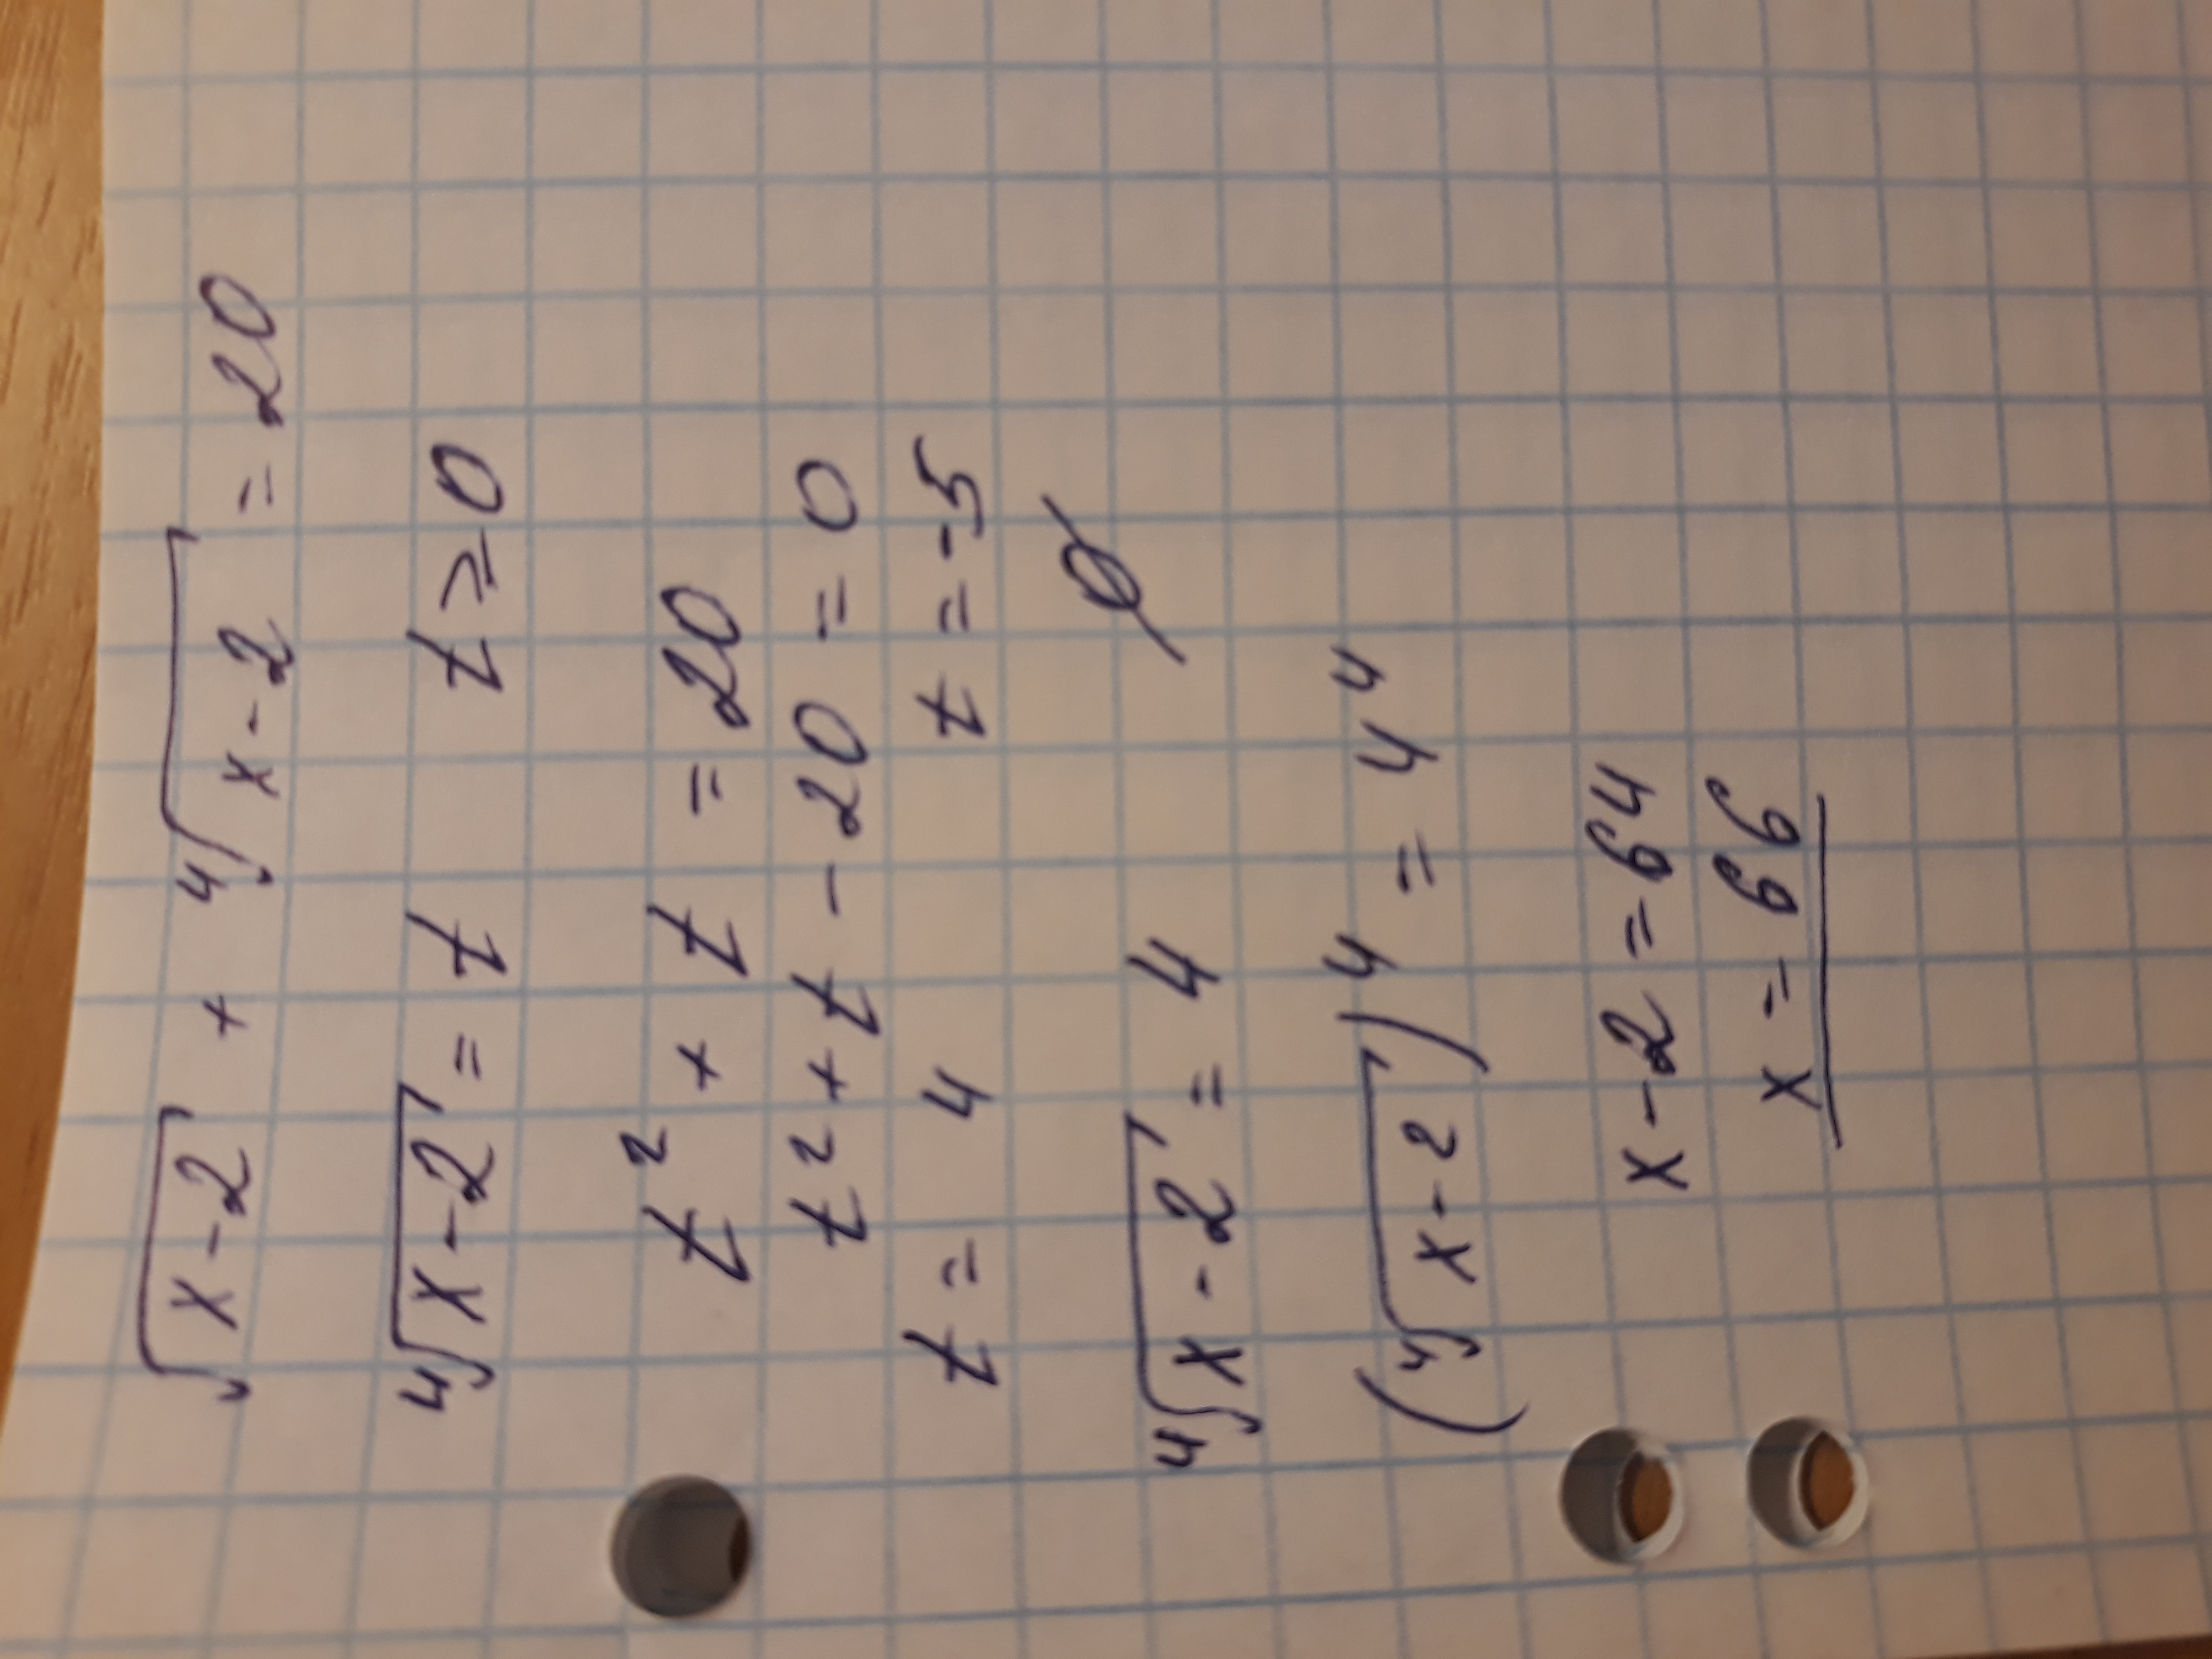 √(x-2) + ⁴√(x-2) = 20
⁴√(x-2) = t t ≥ 0
t² + t = 20
t² + t - 20 = 0
t = 4 t = -5
∅
⁴√(x-2) = 4
(⁴√(x-2))⁴ = 4⁴
x-2 = 64
x = 66